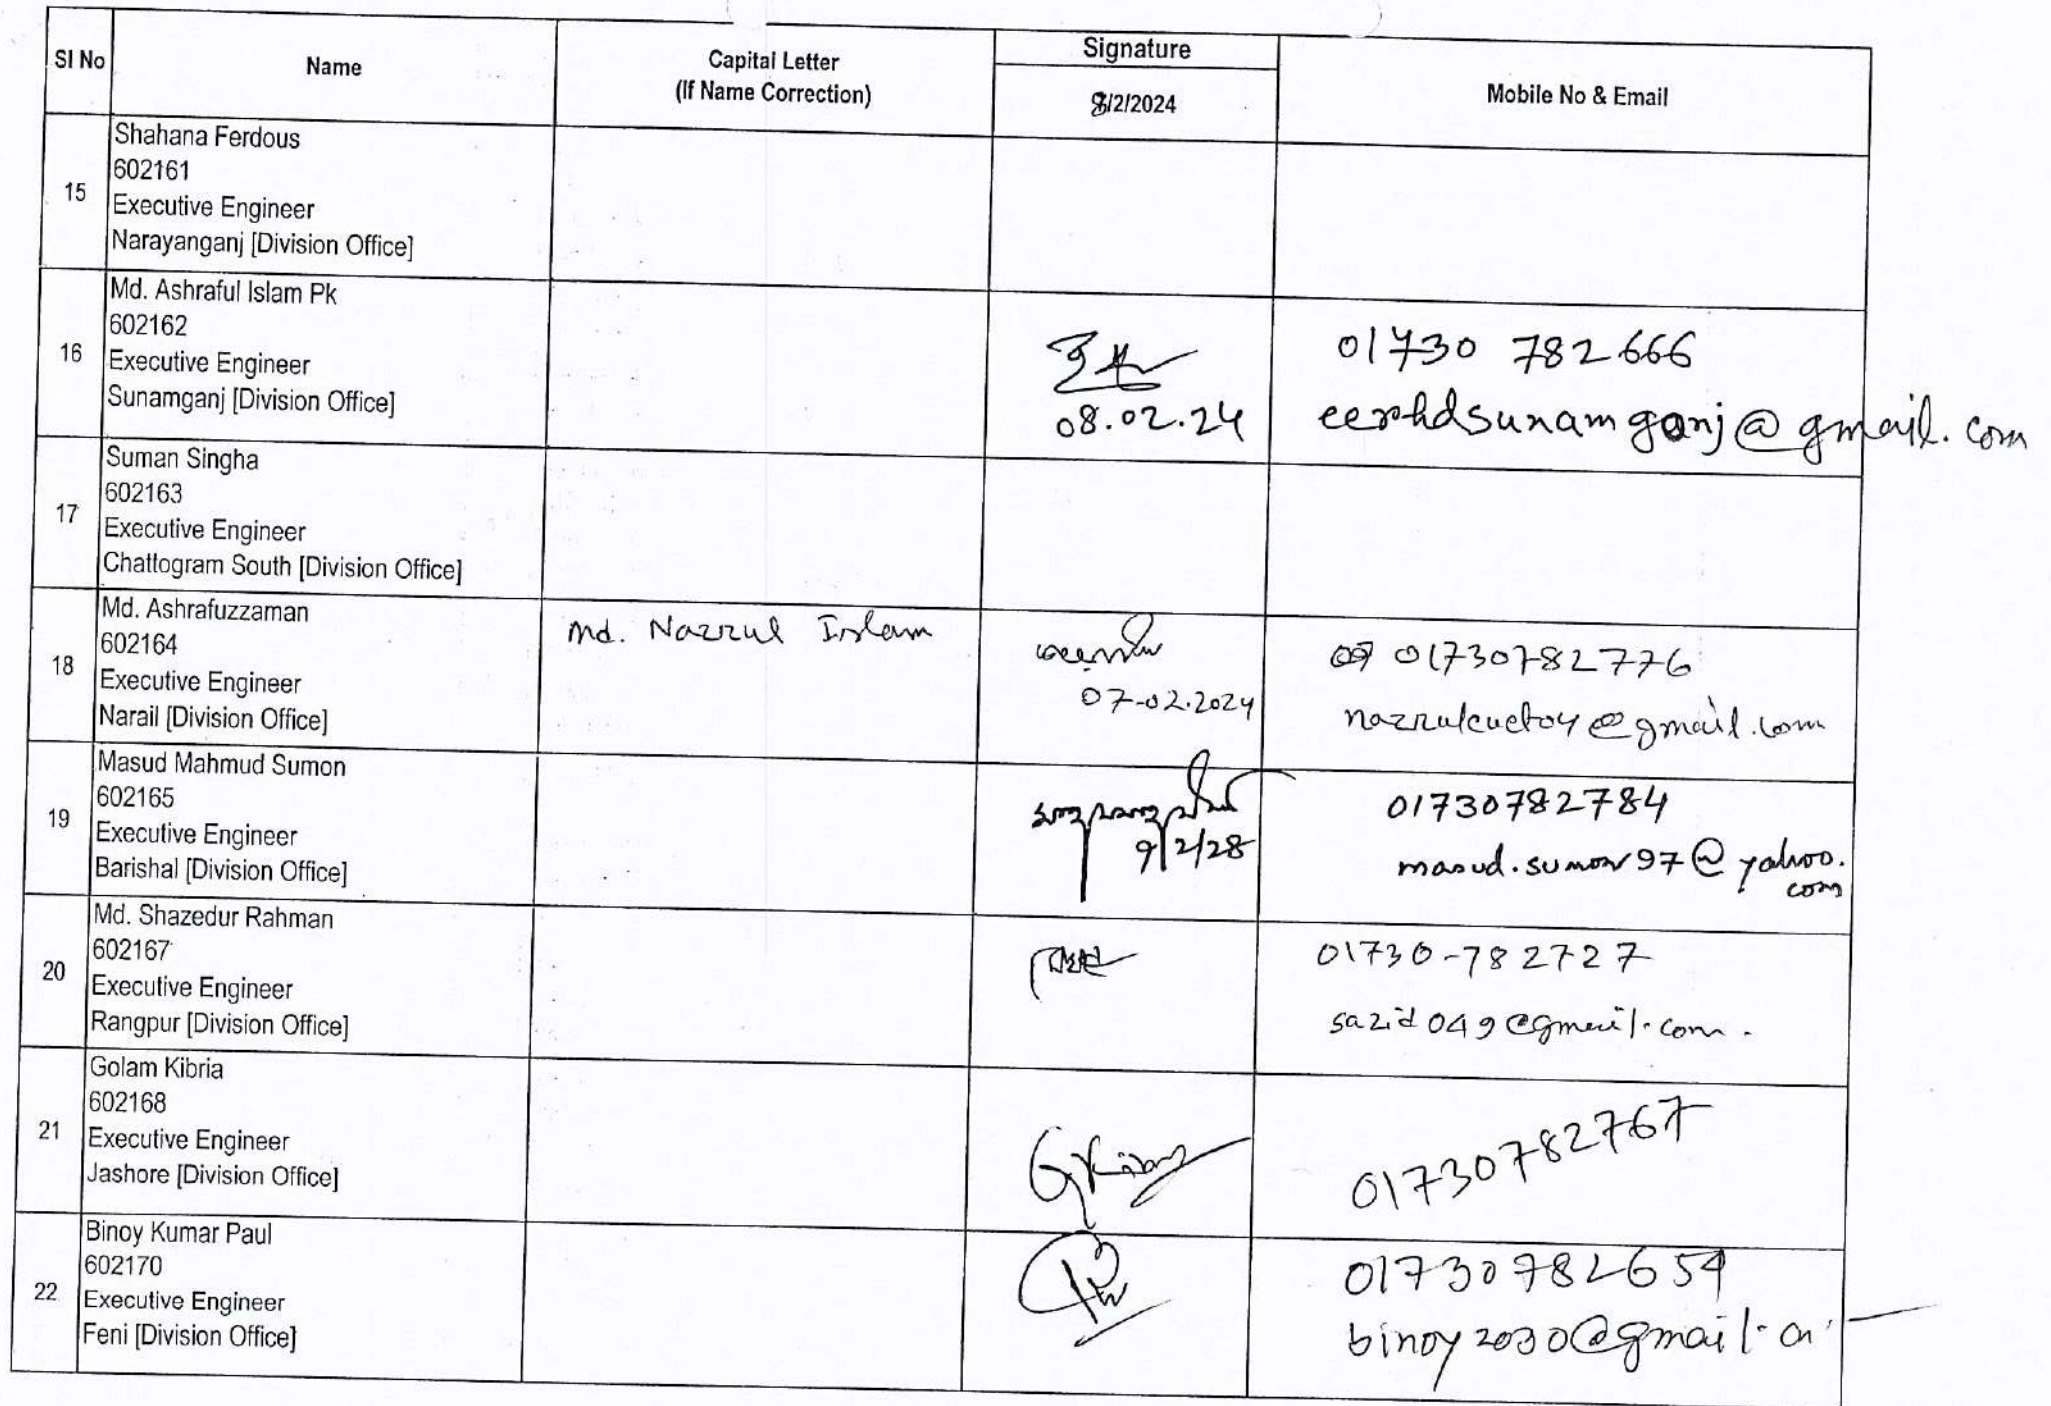 Sl No
Name
Capital Letter
(If Name Correction)
Signature
8/2/2024
Mobile No & Email
15
Shahana Ferdous
602161
Executive Engineer
Narayanganj [Division Office]
16
Md. Ashraful Islam Pk
602162
Executive Engineer
Sunamganj [Division Office]
08.02.24
01730 782666
eerhdsunamganj@gmail.com
17
Suman Singha
602163
Executive Engineer
Chattogram South [Division Office]
18
Md. Ashrafuzzaman
602164
Executive Engineer
Narail [Division Office]
Md. Nazrul Islam
07-02.2024
01730782776
nazrulcuet04@gmail.com
19
Masud Mahmud Sumon
602165
Executive Engineer
Barishal [Division Office]
01730782784
masud.sumon97@yahoo.
com
20
Md. Shazedur Rahman
602167
Executive Engineer
Rangpur [Division Office]
01730-782727
sazid049@gmail.com.
21
Golam Kibria
602168
Executive Engineer
Jashore [Division Office]
01730782767
22
Binoy Kumar Paul
602170
Executive Engineer
Feni [Division Office]
01730782654
binoy2030@gmail.